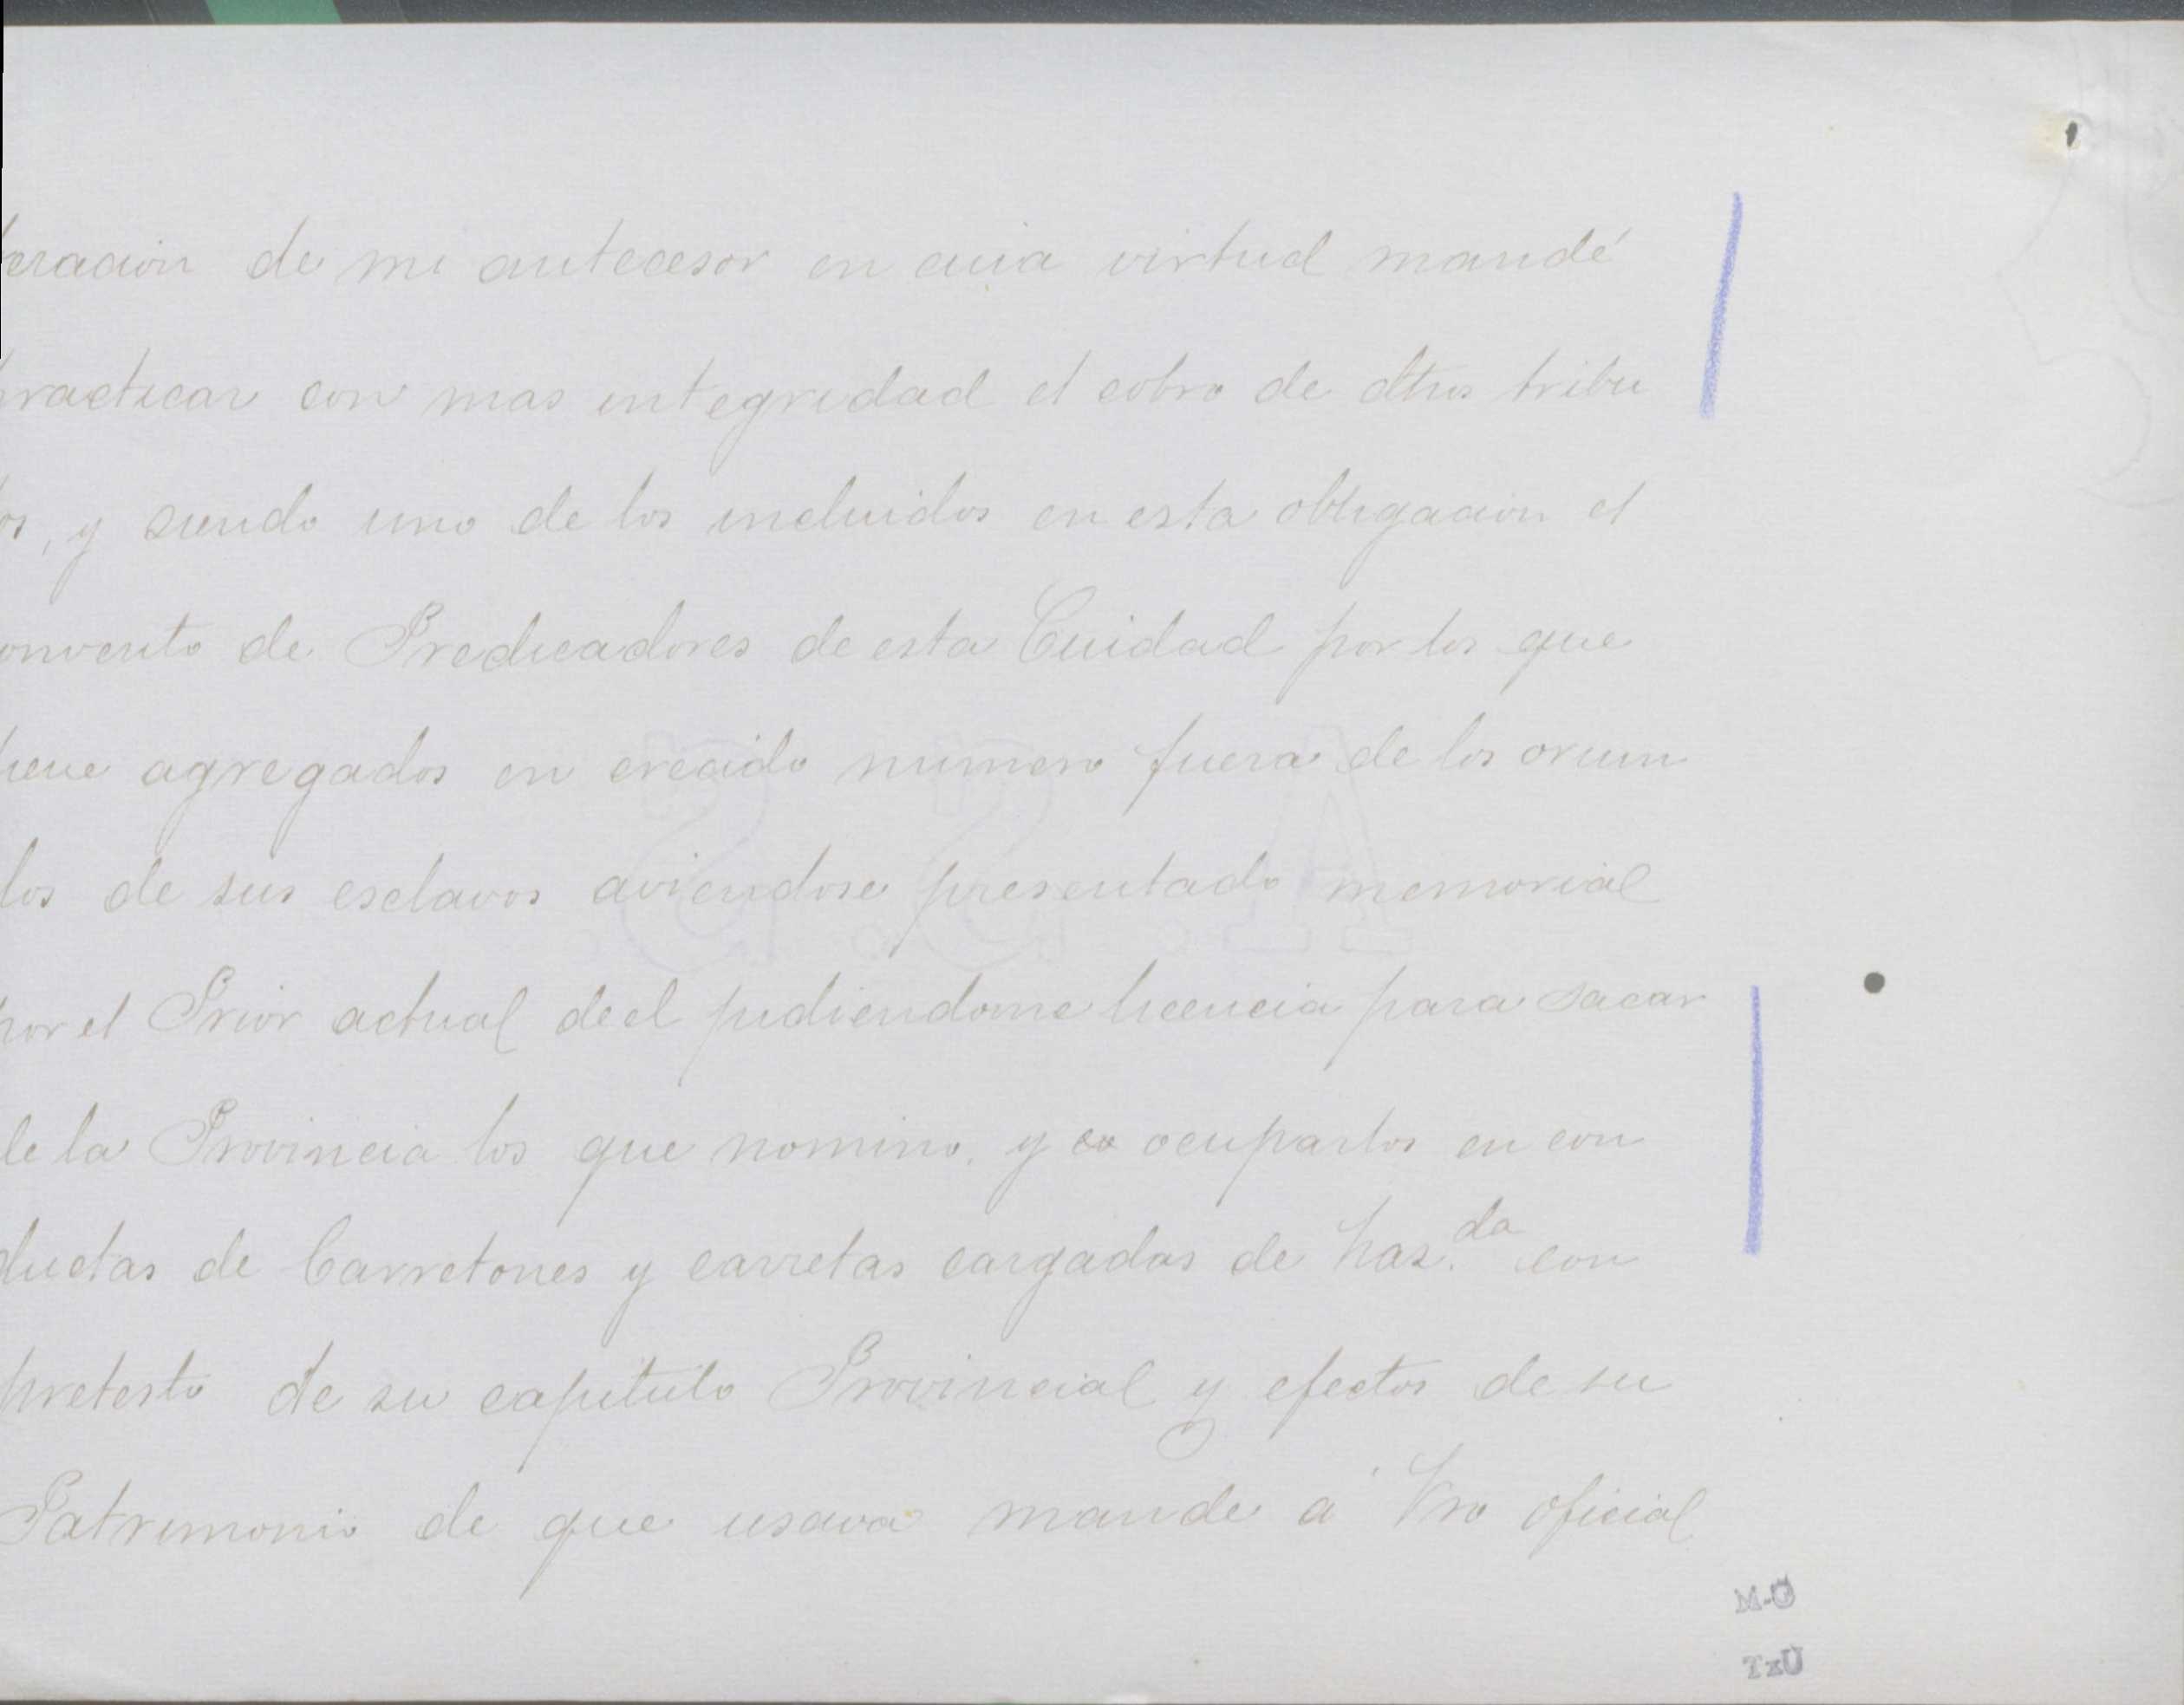 eracion de mi antecesor en cuia virtud mandé
practicar con mas integridad el cobro de dthos tribu
os, y siendo uno de los incluidos en esta obligacion el
onvento de Predicadores de esta Ciudad por los que
tiene agregados en crecido numero fuera de los oriun
los de sus esclavos aviendose presentado memorial
por el Prior actual de el pidiendome licencia para sacar
de la Provincia los que nomino, y ocuparlos en con
ductas de Carretones y carretas cargadas de haz.da con
pretesto de su capitulo Provincial y efectos de su
Patrimonio de que usava mande a Vro oficial
M-O
TzU